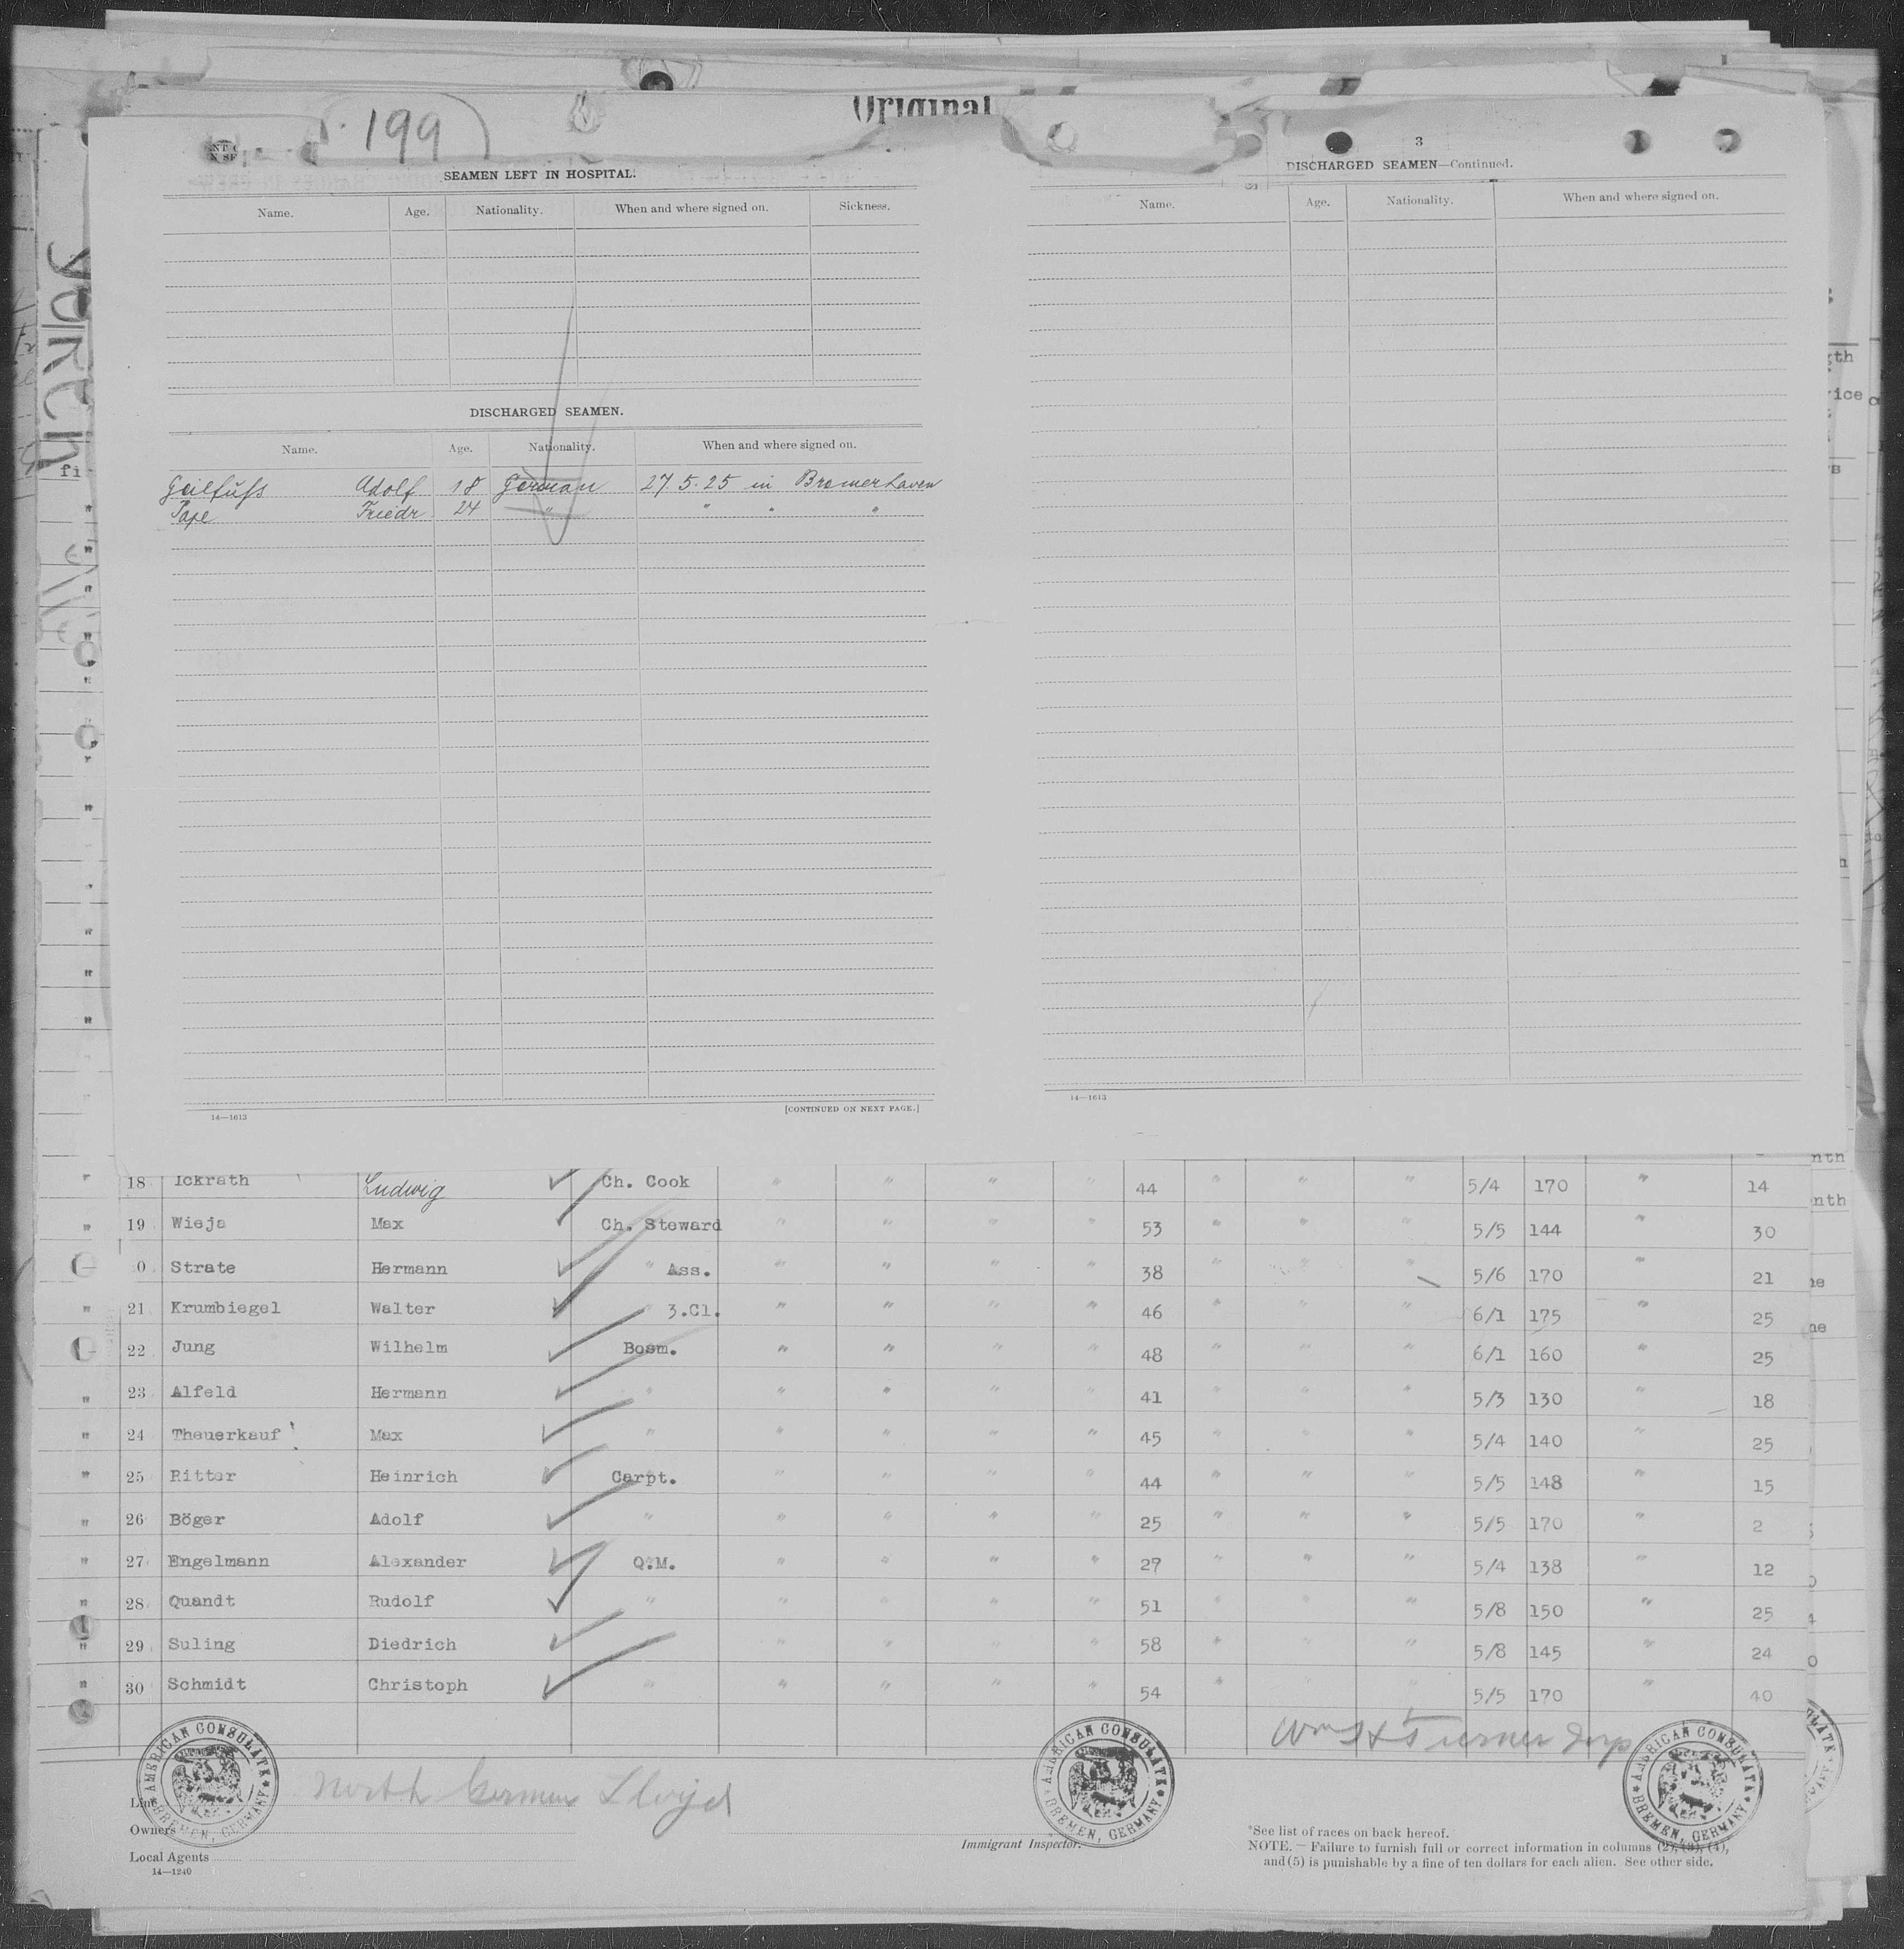 Original
199
SEAMEN LEFT IN HOSPITAL.
Name. Age. Nationality. When and where signed on. Sickness.
DISCHARGED SEAMEN.
Name. Age. Nationality. When and where signed on.
Geilfuss Adolf 18 German 27.5.25 in Bremerhaven
Pape Friedr 24 " " " "
14—1613 [CONTINUED ON NEXT PAGE.]
3
DISCHARGED SEAMEN—Continued.
Name. Age. Nationality. When and where signed on.
14—1613
18 Ickrath Ludwig Ch. Cook " " " " 44 " " " 5/4 170 " 14
19 Wieja Max Ch. Steward " " " " 53 " " " 5/5 144 " 30
0 Strate Hermann " Ass. " " " " 38 " " " 5/6 170 " 21
21 Krumbiegel Walter " 3.Cl. " " " " 46 " " " 6/1 175 " 25
22 Jung Wilhelm Bosm. " " " " 48 " " " 6/1 160 " 25
23 Alfeld Hermann " " " " " 41 " " " 5/3 130 " 18
24 Theuerkauf Max " " " " " 45 " " " 5/4 140 " 25
25 Ritter Heinrich Carpt. " " " " 44 " " " 5/5 148 " 15
26 Böger Adolf " " " " " 25 " " " 5/5 170 " 2
27 Engelmann Alexander Q.M. " " " " 27 " " " 5/4 138 " 12
28 Quandt Rudolf " " " " " 51 " " " 5/8 150 " 25
29 Suling Diedrich " " " " 58 " " " 5/8 145 " 24
30 Schmidt Christoph " " " " " 54 " " " 5/5 170 " 40
Wm H Turner Insp
AMERICAN CONSULATE BREMEN, GERMANY
AMERICAN CONSULATE BREMEN, GERMANY
AMERICAN CONSULATE BREMEN, GERMANY
Line North German Lloyd
Owners
Local Agents
14—1240
Immigrant Inspector.
*See list of races on back hereof.
NOTE.—Failure to furnish full or correct information in columns (2), (3), (4),
and (5) is punishable by a fine of ten dollars for each alien. See other side.